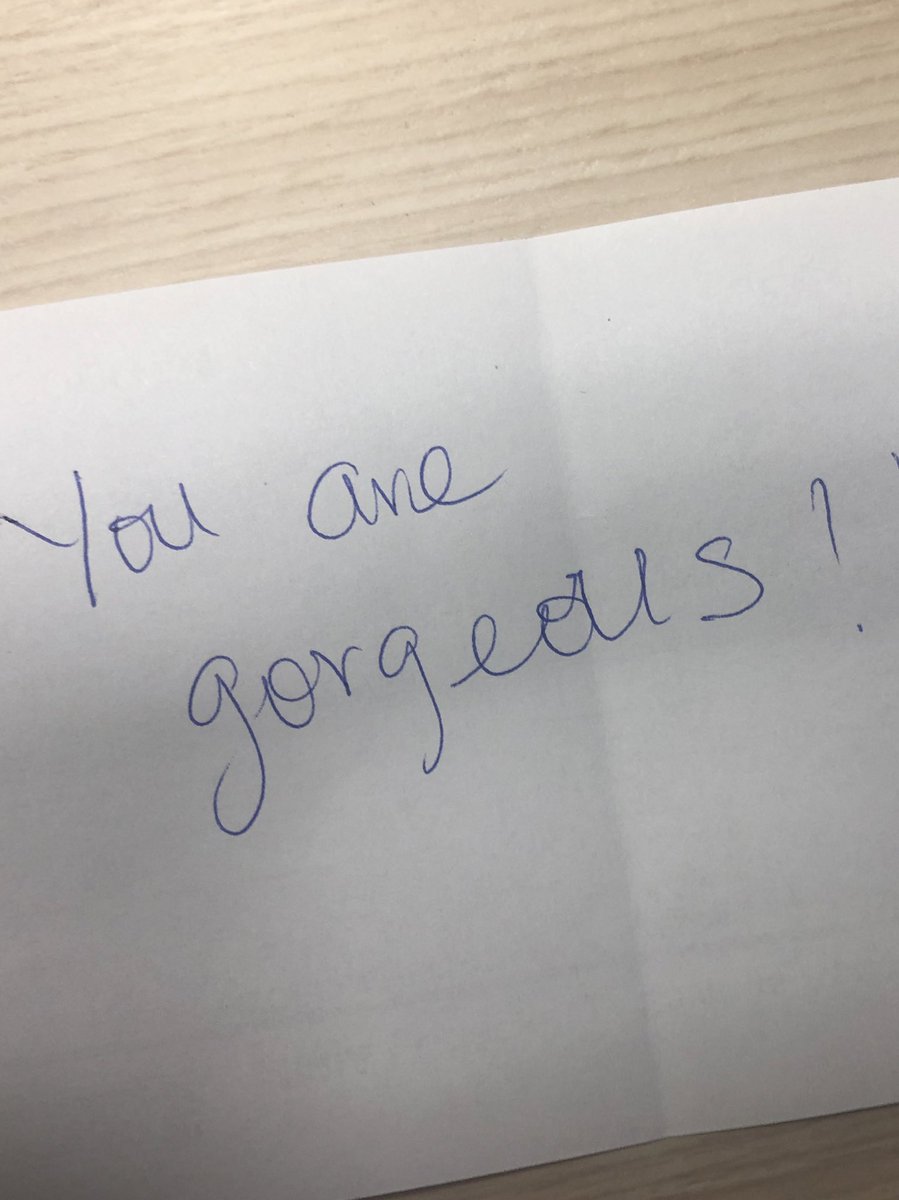 You are
gorgeous!